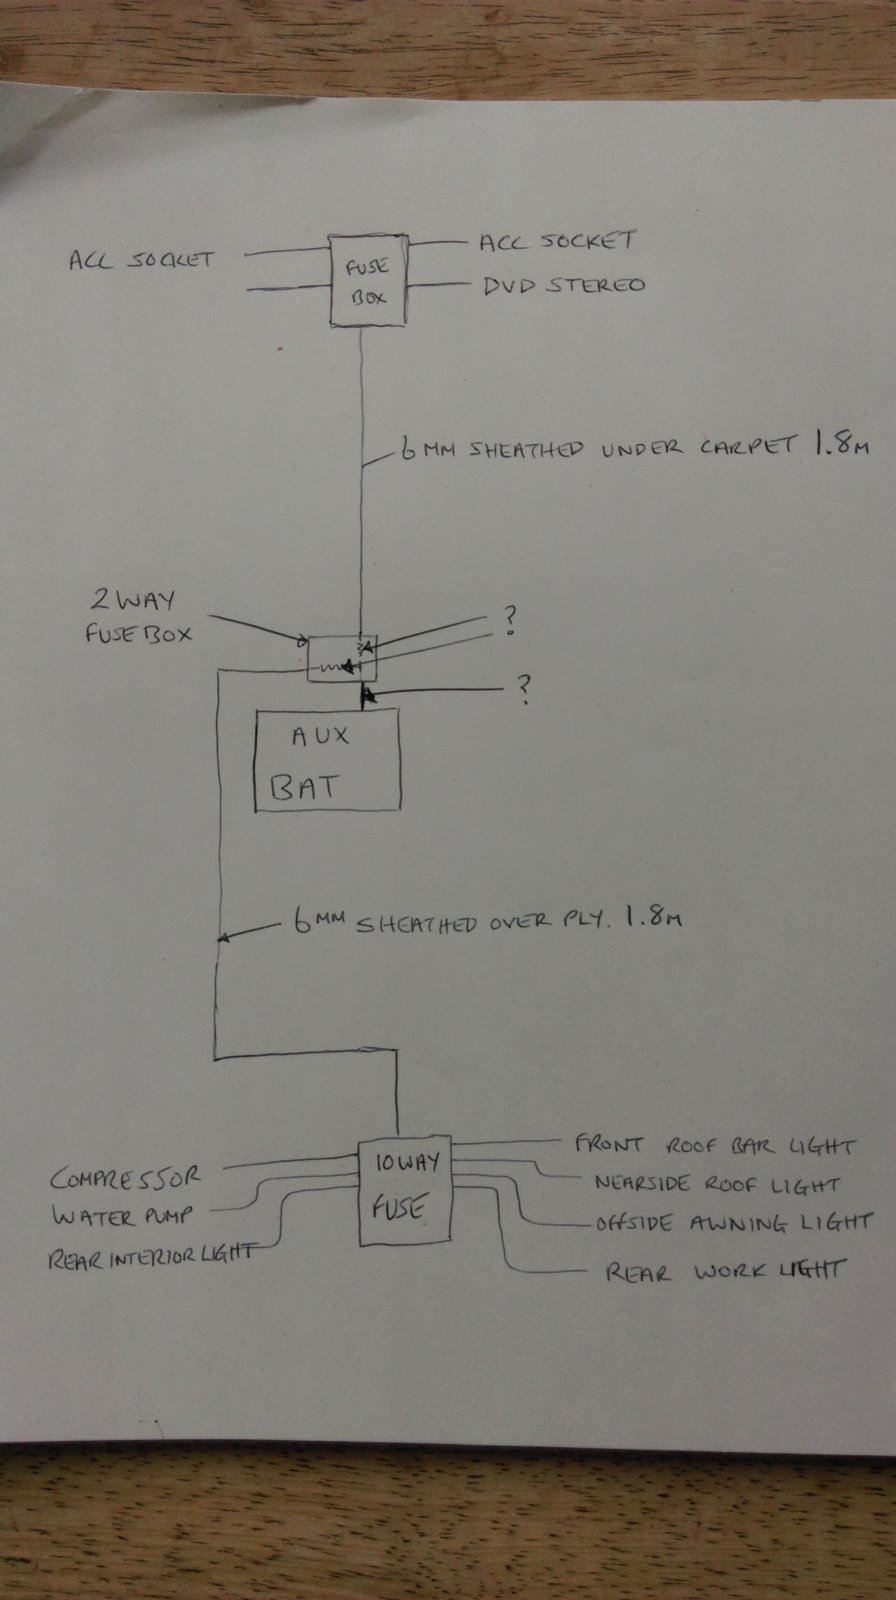 ACC SOCKET
ACC SOCKET
FUSE
BOX
DVD STEREO
6MM SHEATHED UNDER CARPET 1.8M
2 WAY
FUSE BOX
?
?
AUX
BAT
6MM SHEATHED OVER PLY. 1.8M
10 WAY
FUSE
COMPRESSOR
WATER PUMP
REAR INTERIOR LIGHT
FRONT ROOF BAR LIGHT
NEARSIDE ROOF LIGHT
OFFSIDE AWNING LIGHT
REAR WORK LIGHT